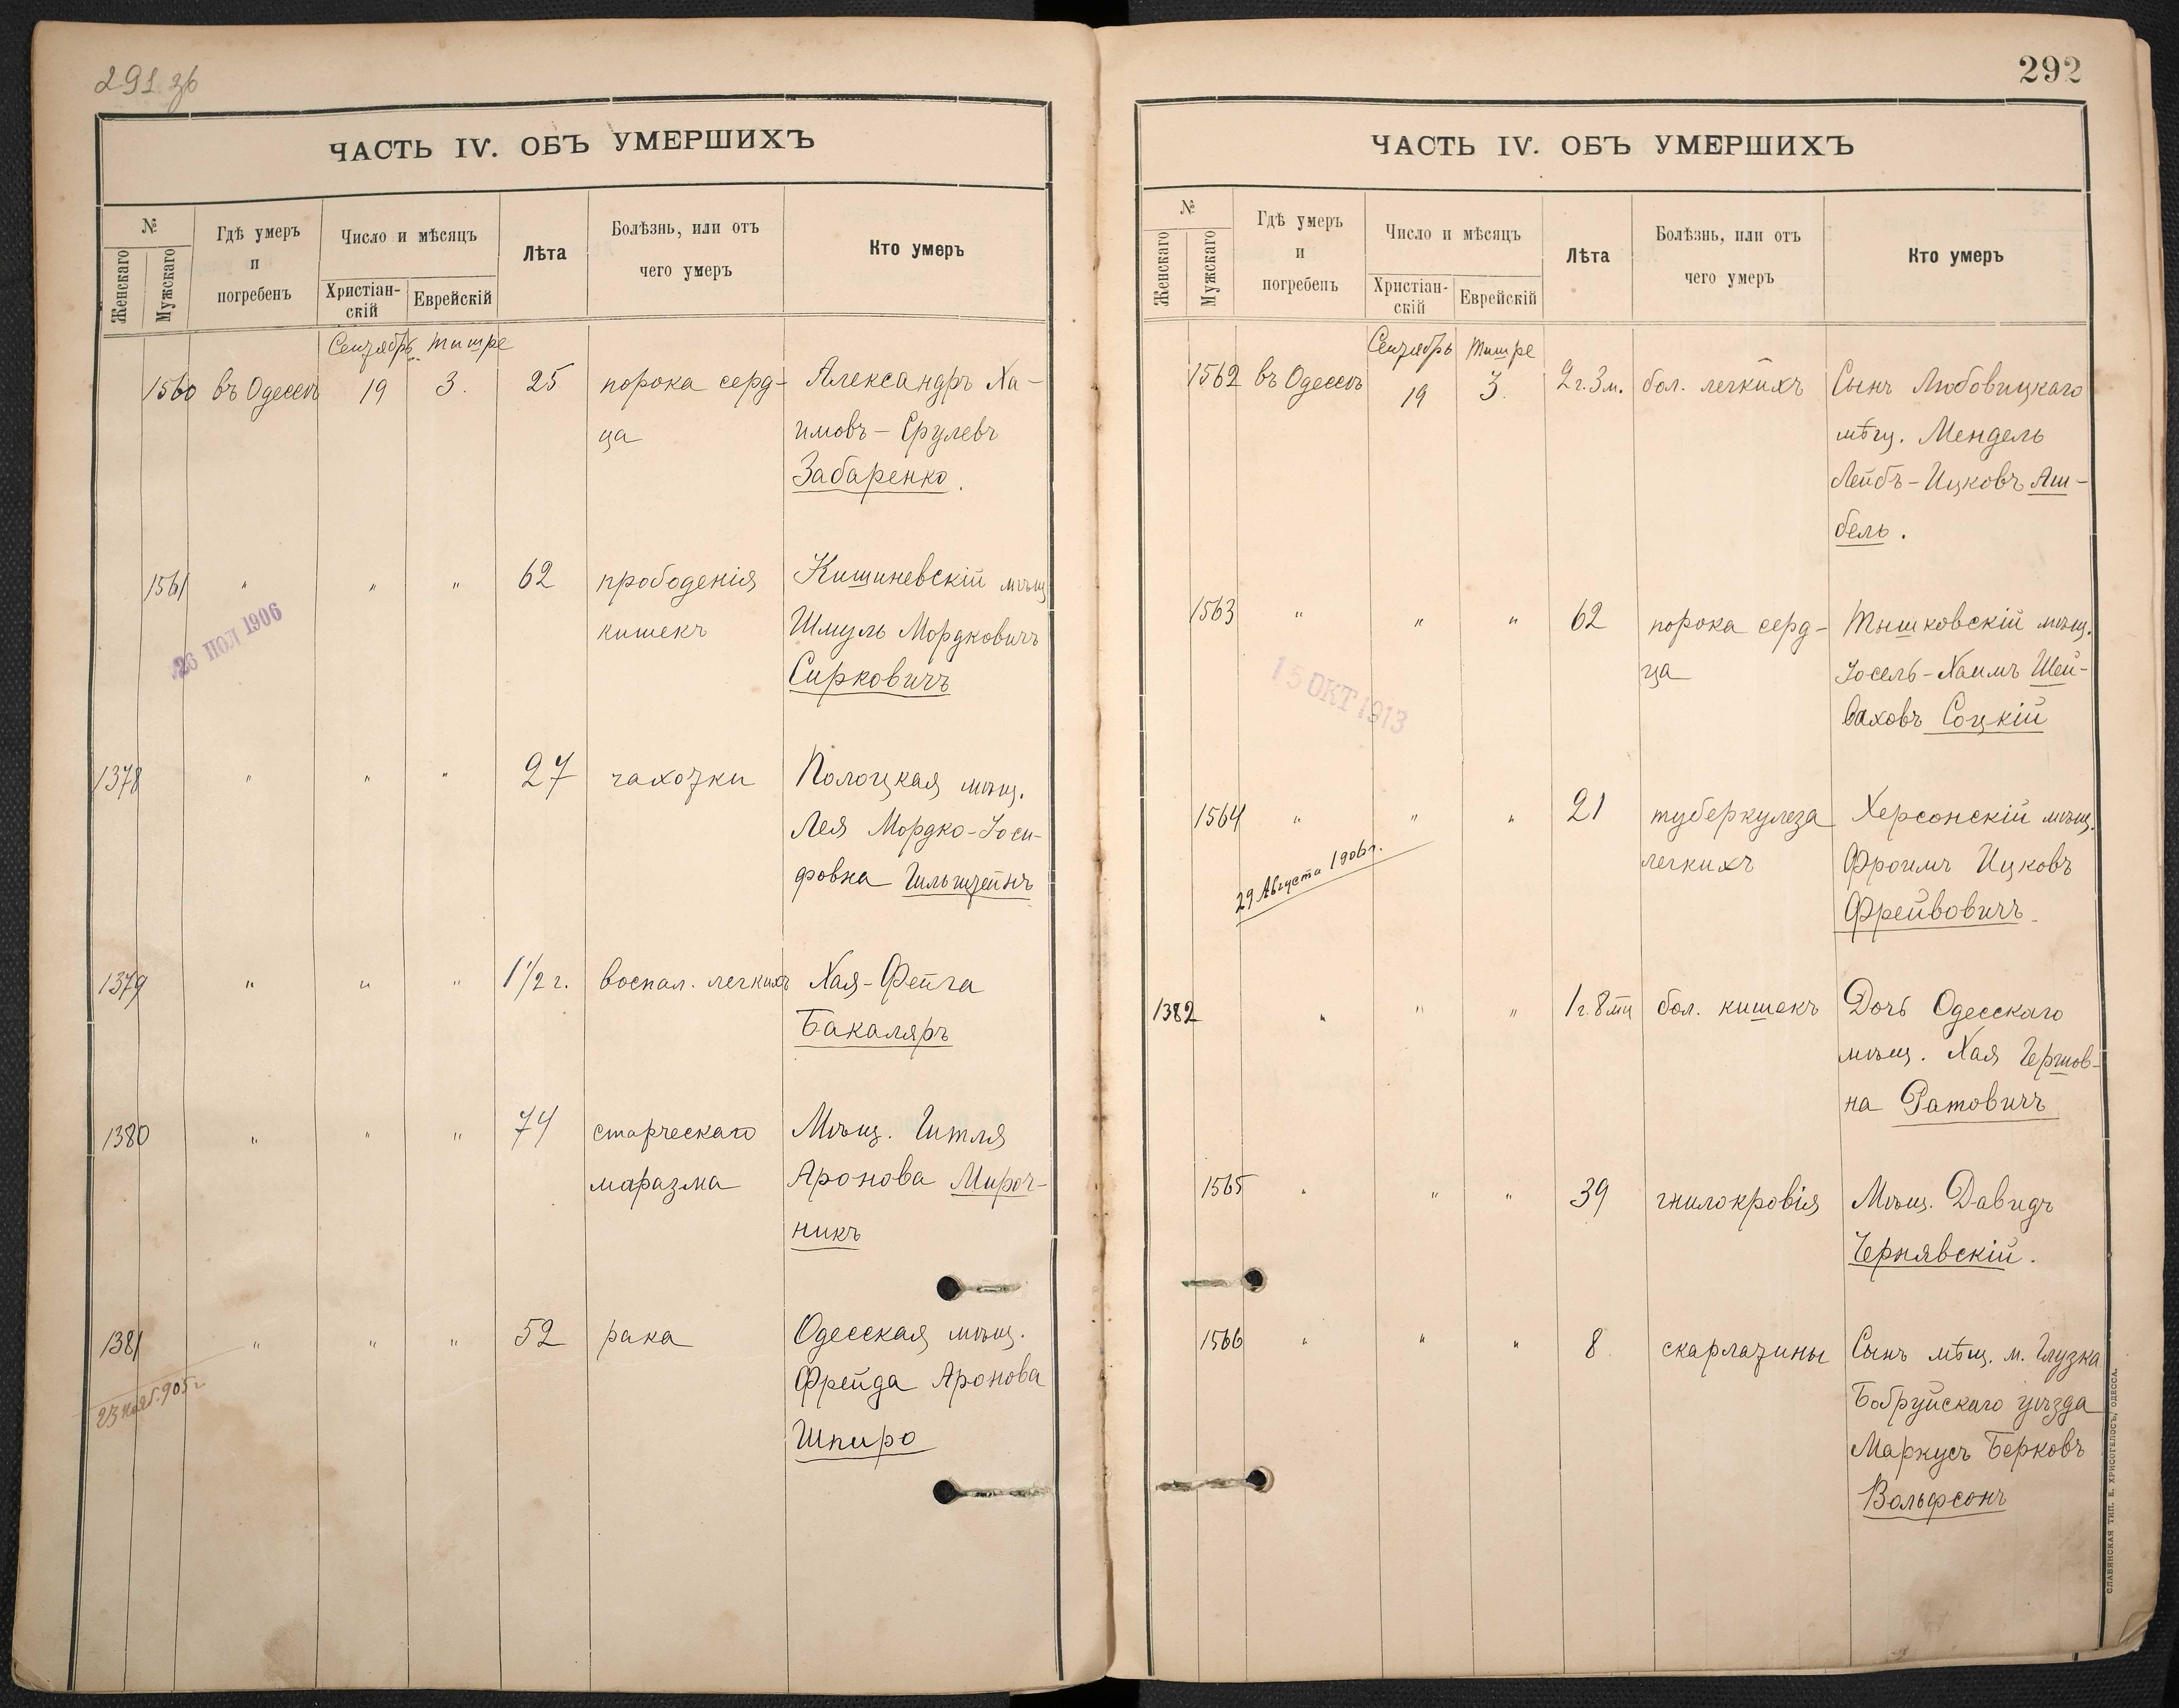 291 зб
ЧАСТЬ IV. ОБЪ УМЕРШИХЪ
№
Женскаго
Мужскаго
Гдѣ умеръ
и
погребенъ
Число и мѣсяцъ
Христіан-
скій
Еврейскій
Лѣта
Болѣзнь, или отъ
чего умеръ
Кто умеръ
Сентябрь Тишре
1560 въ Одессѣ 19 3. 25 порока серд- Александръ Ха-
ца имовъ-Срулевъ
Забаренко.
1561 " " " 62 прободенія Кишиневскій мѣщ.
кишекъ Шмуль Мордковичъ
Сирковичъ
26 ІЮЛ 1906
1378 " " " 27 чахотки Полоцкая мѣщ.
Лея Мордко-Іоси-
фовна Гильштейнъ
1379 " " " 1 1/2 г. воспал. легкихъ Хая-Фейга
Бакаляръ
1380 " " " 74 старческаго Мѣщ. Гитля
маразма Аронова Мироч-
никъ
1381 " " " 52 рака Одесская мѣщ.
Фрейда Аронова
Шпиро
23 нояб. 905 г.
292
ЧАСТЬ IV. ОБЪ УМЕРШИХЪ
№
Женскаго
Мужскаго
Гдѣ умеръ
и
погребенъ
Число и мѣсяцъ
Христіан-
скій
Еврейскій
Лѣта
Болѣзнь, или отъ
чего умеръ
Кто умеръ
Сентябрь Тишре
1562 въ Одессѣ 19 3. 2 г. 3 м. бол. легкихъ Сынъ Любовицкаго
мѣщ. Мендель
Лейбъ-Ицковъ Аш-
бель.
1563 " " " 62 порока серд- Тышковскій мѣщ.
ца Іосель-Хаимъ Шей-
ваховъ Соцкій
15 ОКТ 1913
1564 " " " 21 туберкулеза Херсонскій мѣщ.
легкихъ Фроимъ Ицковъ
Фрейвовичъ
29 Августа 1906 г.
1382 " " " 1 г. 8 м. бол. кишекъ Дочь Одесскаго
мѣщ. Хая Гершов-
на Ратовичъ
1565 " " " 39 гнилокровія Мѣщ. Давидъ
Чернявскій.
1566 " " " 8 скарлатины Сынъ мѣщ. м. Глузка
Бобруйскаго уѣзда
Маркусъ Берковъ
Вольфсонъ
СЛАВЯНСКАЯ ТИП. Е. ХРИСОГЕЛОСЪ, ОДЕССА.